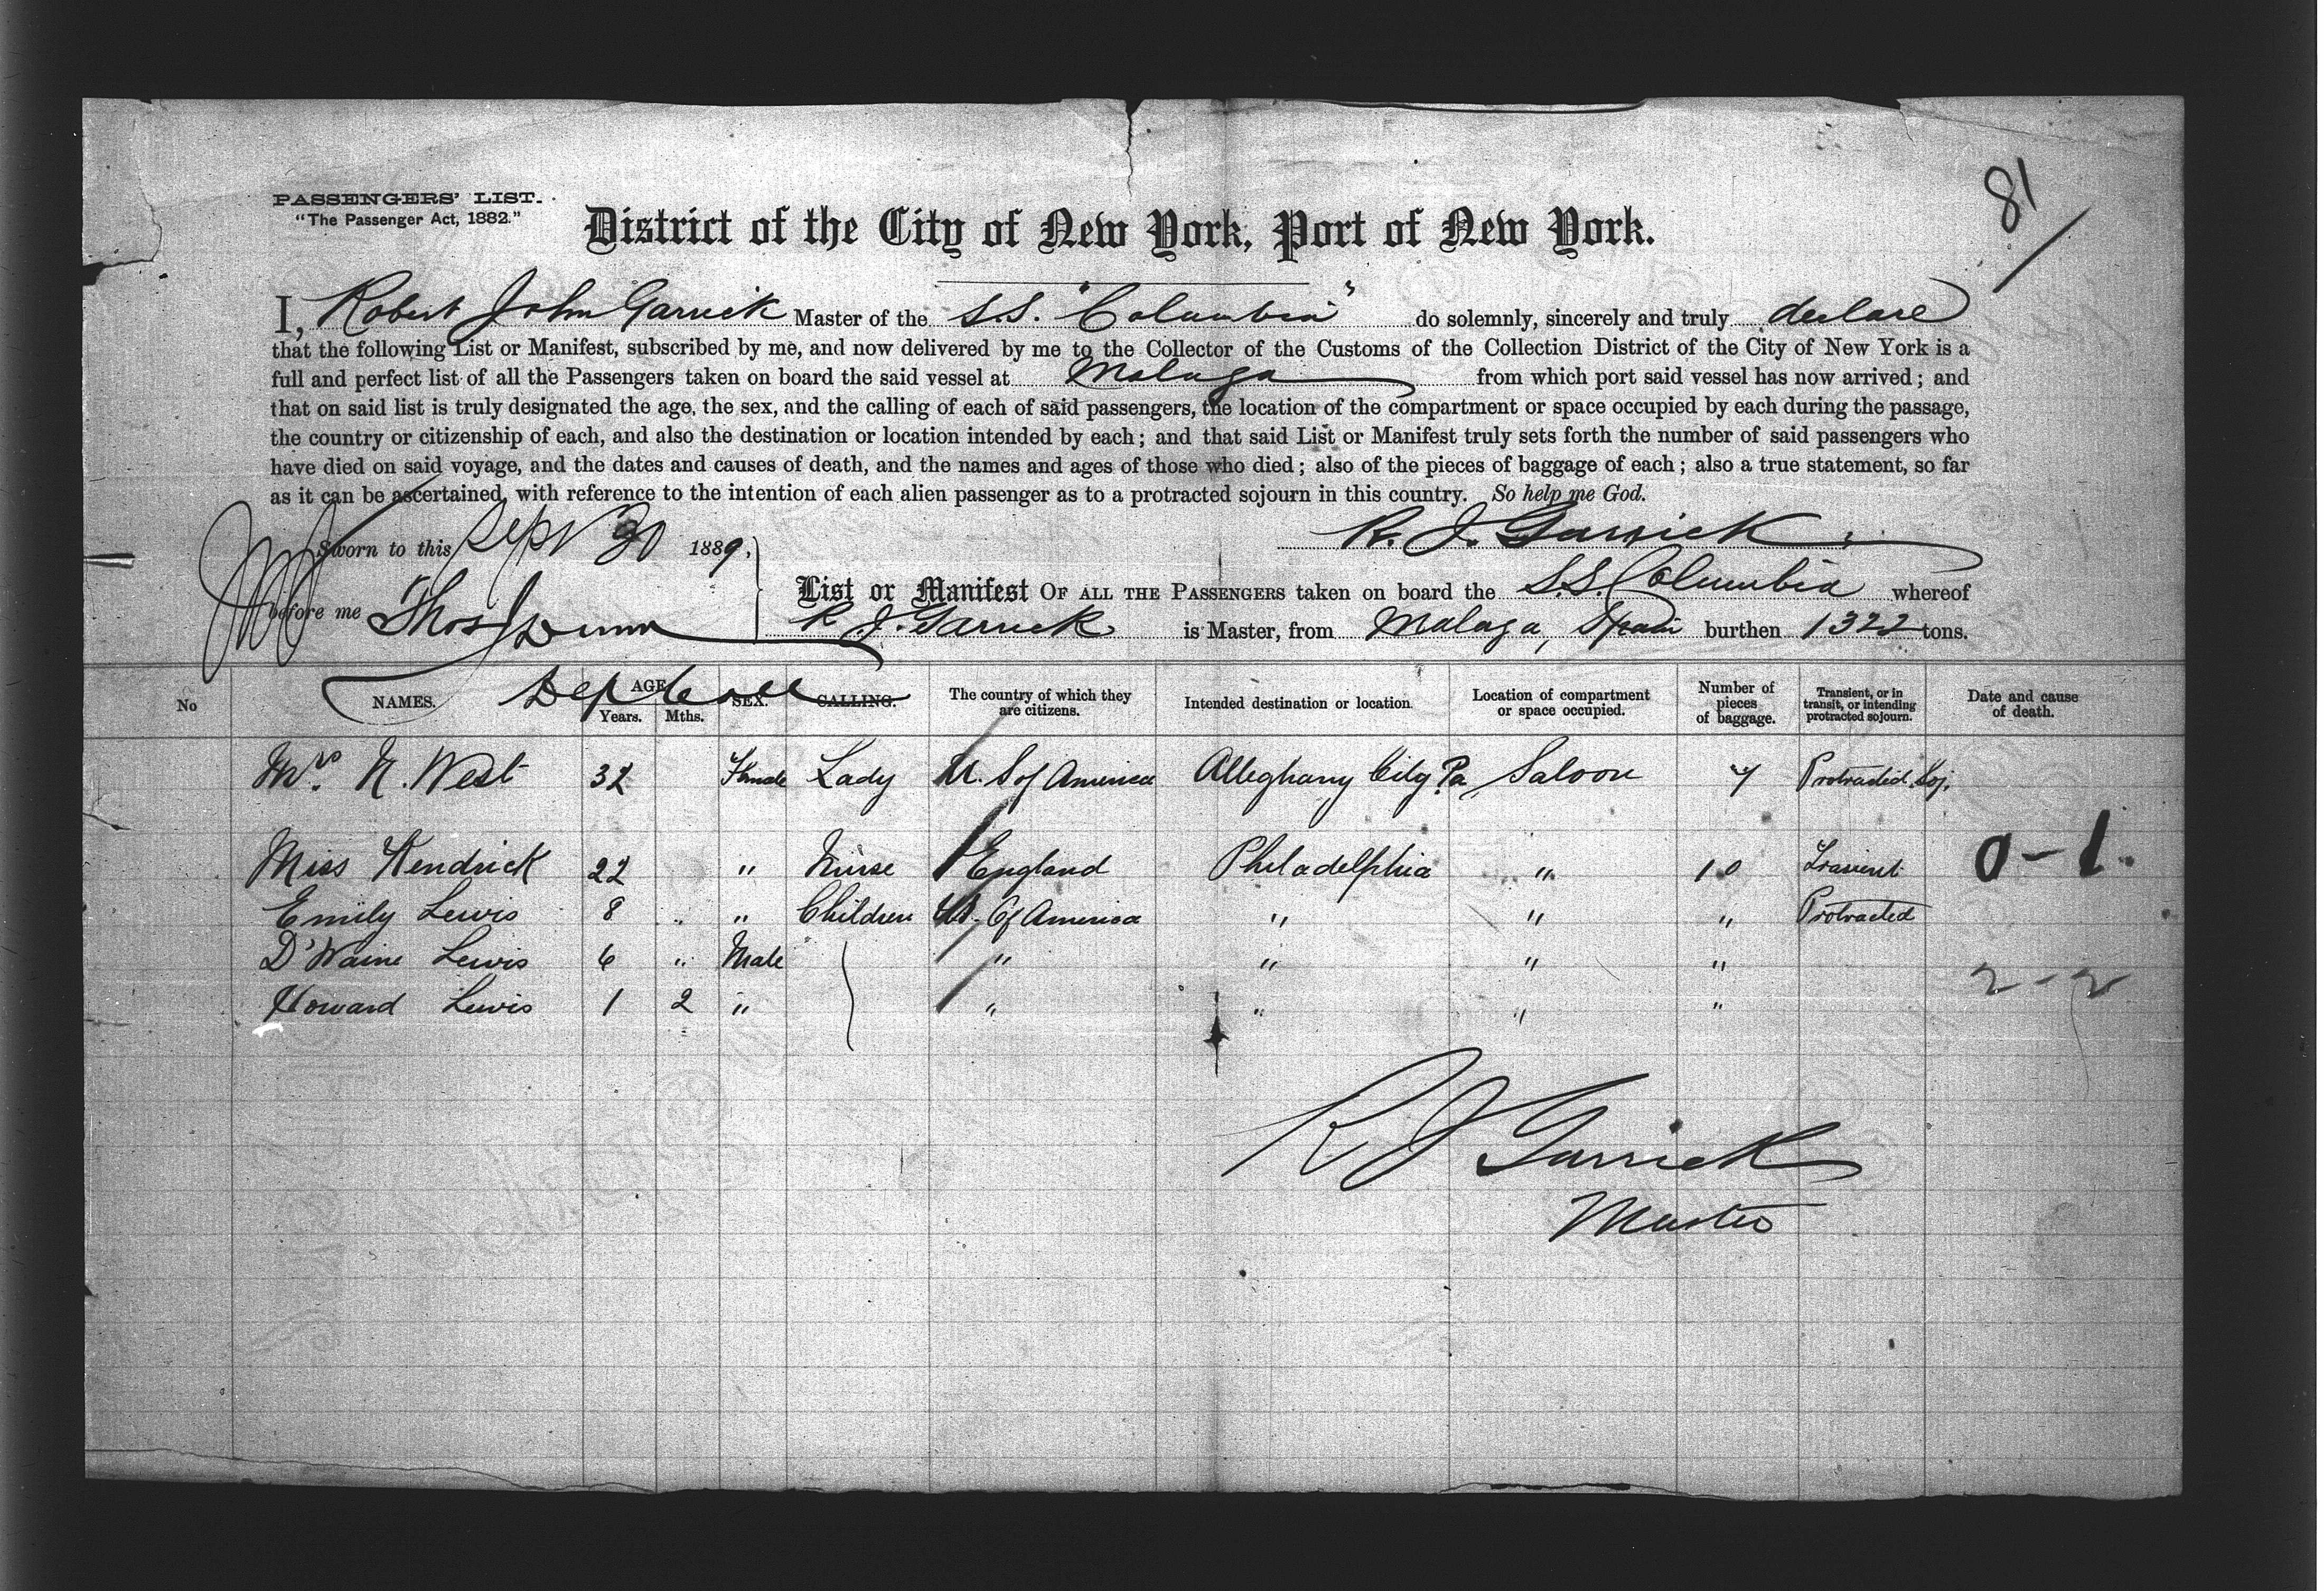 81
PASSENGERS' LIST.
"The Passenger Act, 1882."
District of the City of New York, Port of New York.
I, Robert John Garrick Master of the S.S. "Columbia" do solemnly, sincerely and truly declare
that the following List or Manifest, subscribed by me, and now delivered by me to the Collector of the Customs of the Collection District of the City of New York is a
full and perfect list of all the Passengers taken on board the said vessel at Malaga from which port said vessel has now arrived; and
that on said list is truly designated the age, the sex, and the calling of each of said passengers, the location of the compartment or space occupied by each during the passage,
the country or citizenship of each, and also the destination or location intended by each; and that said List or Manifest truly sets forth the number of said passengers who
have died on said voyage, and the dates and causes of death, and the names and ages of those who died; also of the pieces of baggage of each; also a true statement, so far
as it can be ascertained, with reference to the intention of each alien passenger as to a protracted sojourn in this country. So help me God.
Sworn to this Sept 30 1889, R. J. Garrick
before me Thos J Dunn
Dep Coll
List or Manifest OF ALL THE PASSENGERS taken on board the S.S. Columbia whereof
R. J. Garrick is Master, from Malaga, Spain burthen 1322 tons.
No NAMES. AGE Years. Mths. SEX. CALLING. The country of which they are citizens. Intended destination or location. Location of compartment or space occupied. Number of pieces of baggage. Transient, or in transit, or intending protracted sojourn. Date and cause of death.
Mrs. N. West 32 Female Lady U. S of America Alleghany City Pa Saloon 4 Protracted Soj.
Miss Kendrick 22 " Nurse England Philadelphia " 10 Transient 0-1
Emily Lewis 8 " " Children US. Of America " " " Protracted
D'Waine Lewis 6 " Male " " " "
Howard Lewis 1 2 " " " " " 2-2
R J Garrick
Master